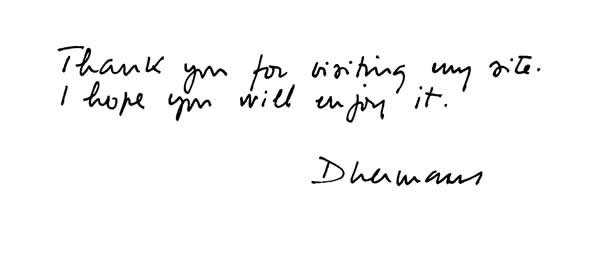 Thank you for visiting my site.
I hope you will enjoy it.
Dhermans